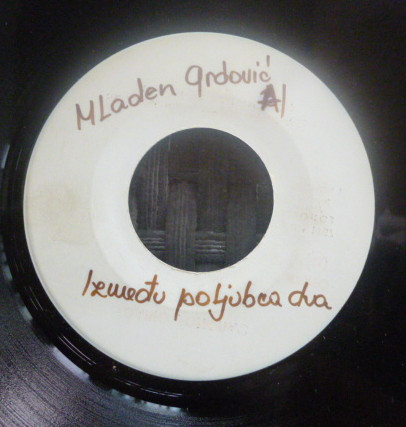 Mladen Grdović
A1
Između poljubca dva